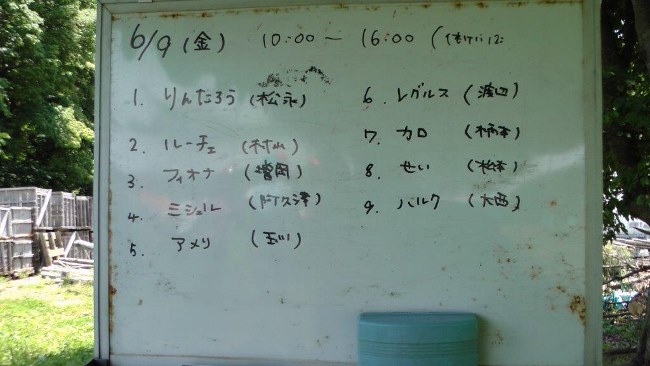 6/9(金) 10:00～16:00
1. りんたろう(松永)
2. ルーチェ(村山)
3. フィオナ(増岡)
4. ミシェル(阿久津)
5. アメリ(玉川)
6. レグルス(渡辺)
7. カロ(橋本)
8. せい(松本)
9. バルク(大西)